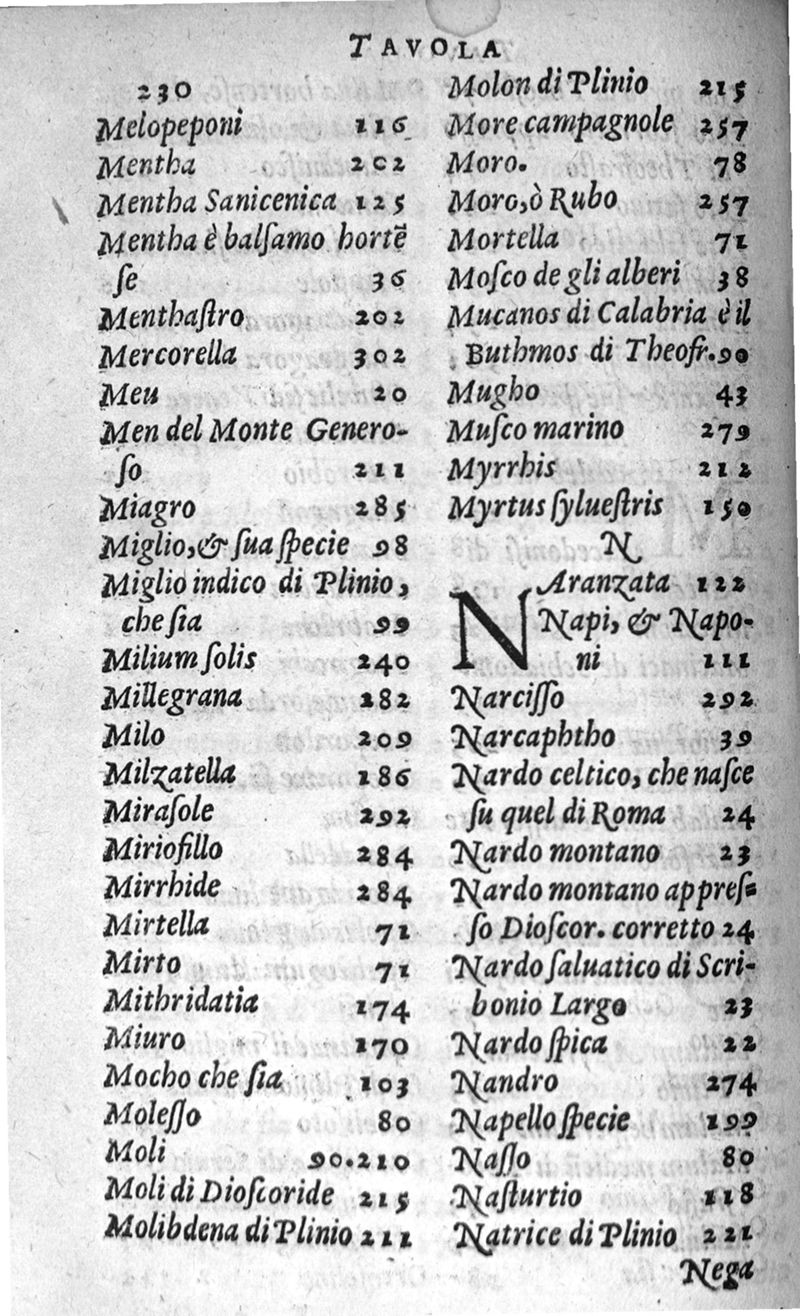 TAVOLA
230
Melopeponi 116
Mentha 202
Mentha Sanicenica 125
Mentha è balſamo hortē
ſe 36
Menthaſtro 202
Mercorella 302
Meu 20
Men del Monte Genero-
ſo 211
Miagro 285
Miglio,& ſua ſpecie 98
Miglio indico di Plinio,
che ſia 99
Milium ſolis 240
Millegrana 282
Milo 209
Milzatella 186
Miraſole 292
Miriofillo 284
Mirrhide 284
Mirtella 71
Mirto 71
Mithridatia 174
Miuro 170
Mocho che ſia 103
Moleſſo 80
Moli 90.210
Moli di Dioſcoride 215
Molibdena di Plinio 211
Molon di Plinio 215
More campagnole 257
Moro. 78
Moro,ò Rubo 257
Mortella 71
Moſco de gli alberi 38
Mucanos di Calabria è il
Buthmos di Theofr.90
Mugho 43
Muſco marino 279
Myrrhis 212
Myrtus ſylueſtris 150
N
NAranzata 122
Napi, & Napo-
ni 111
Narciſſo 292
Narcaphtho 39
Nardo celtico, che naſce
ſu quel di Roma 24
Nardo montano 23
Nardo montano appreſ-
ſo Dioſcor. corretto 24
Nardo ſaluatico di Scri-
bonio Largo 23
Nardo ſpica 22
Nandro 274
Napello ſpecie 199
Naſſo 80
Naſturtio 118
Natrice di Plinio 221
Nega